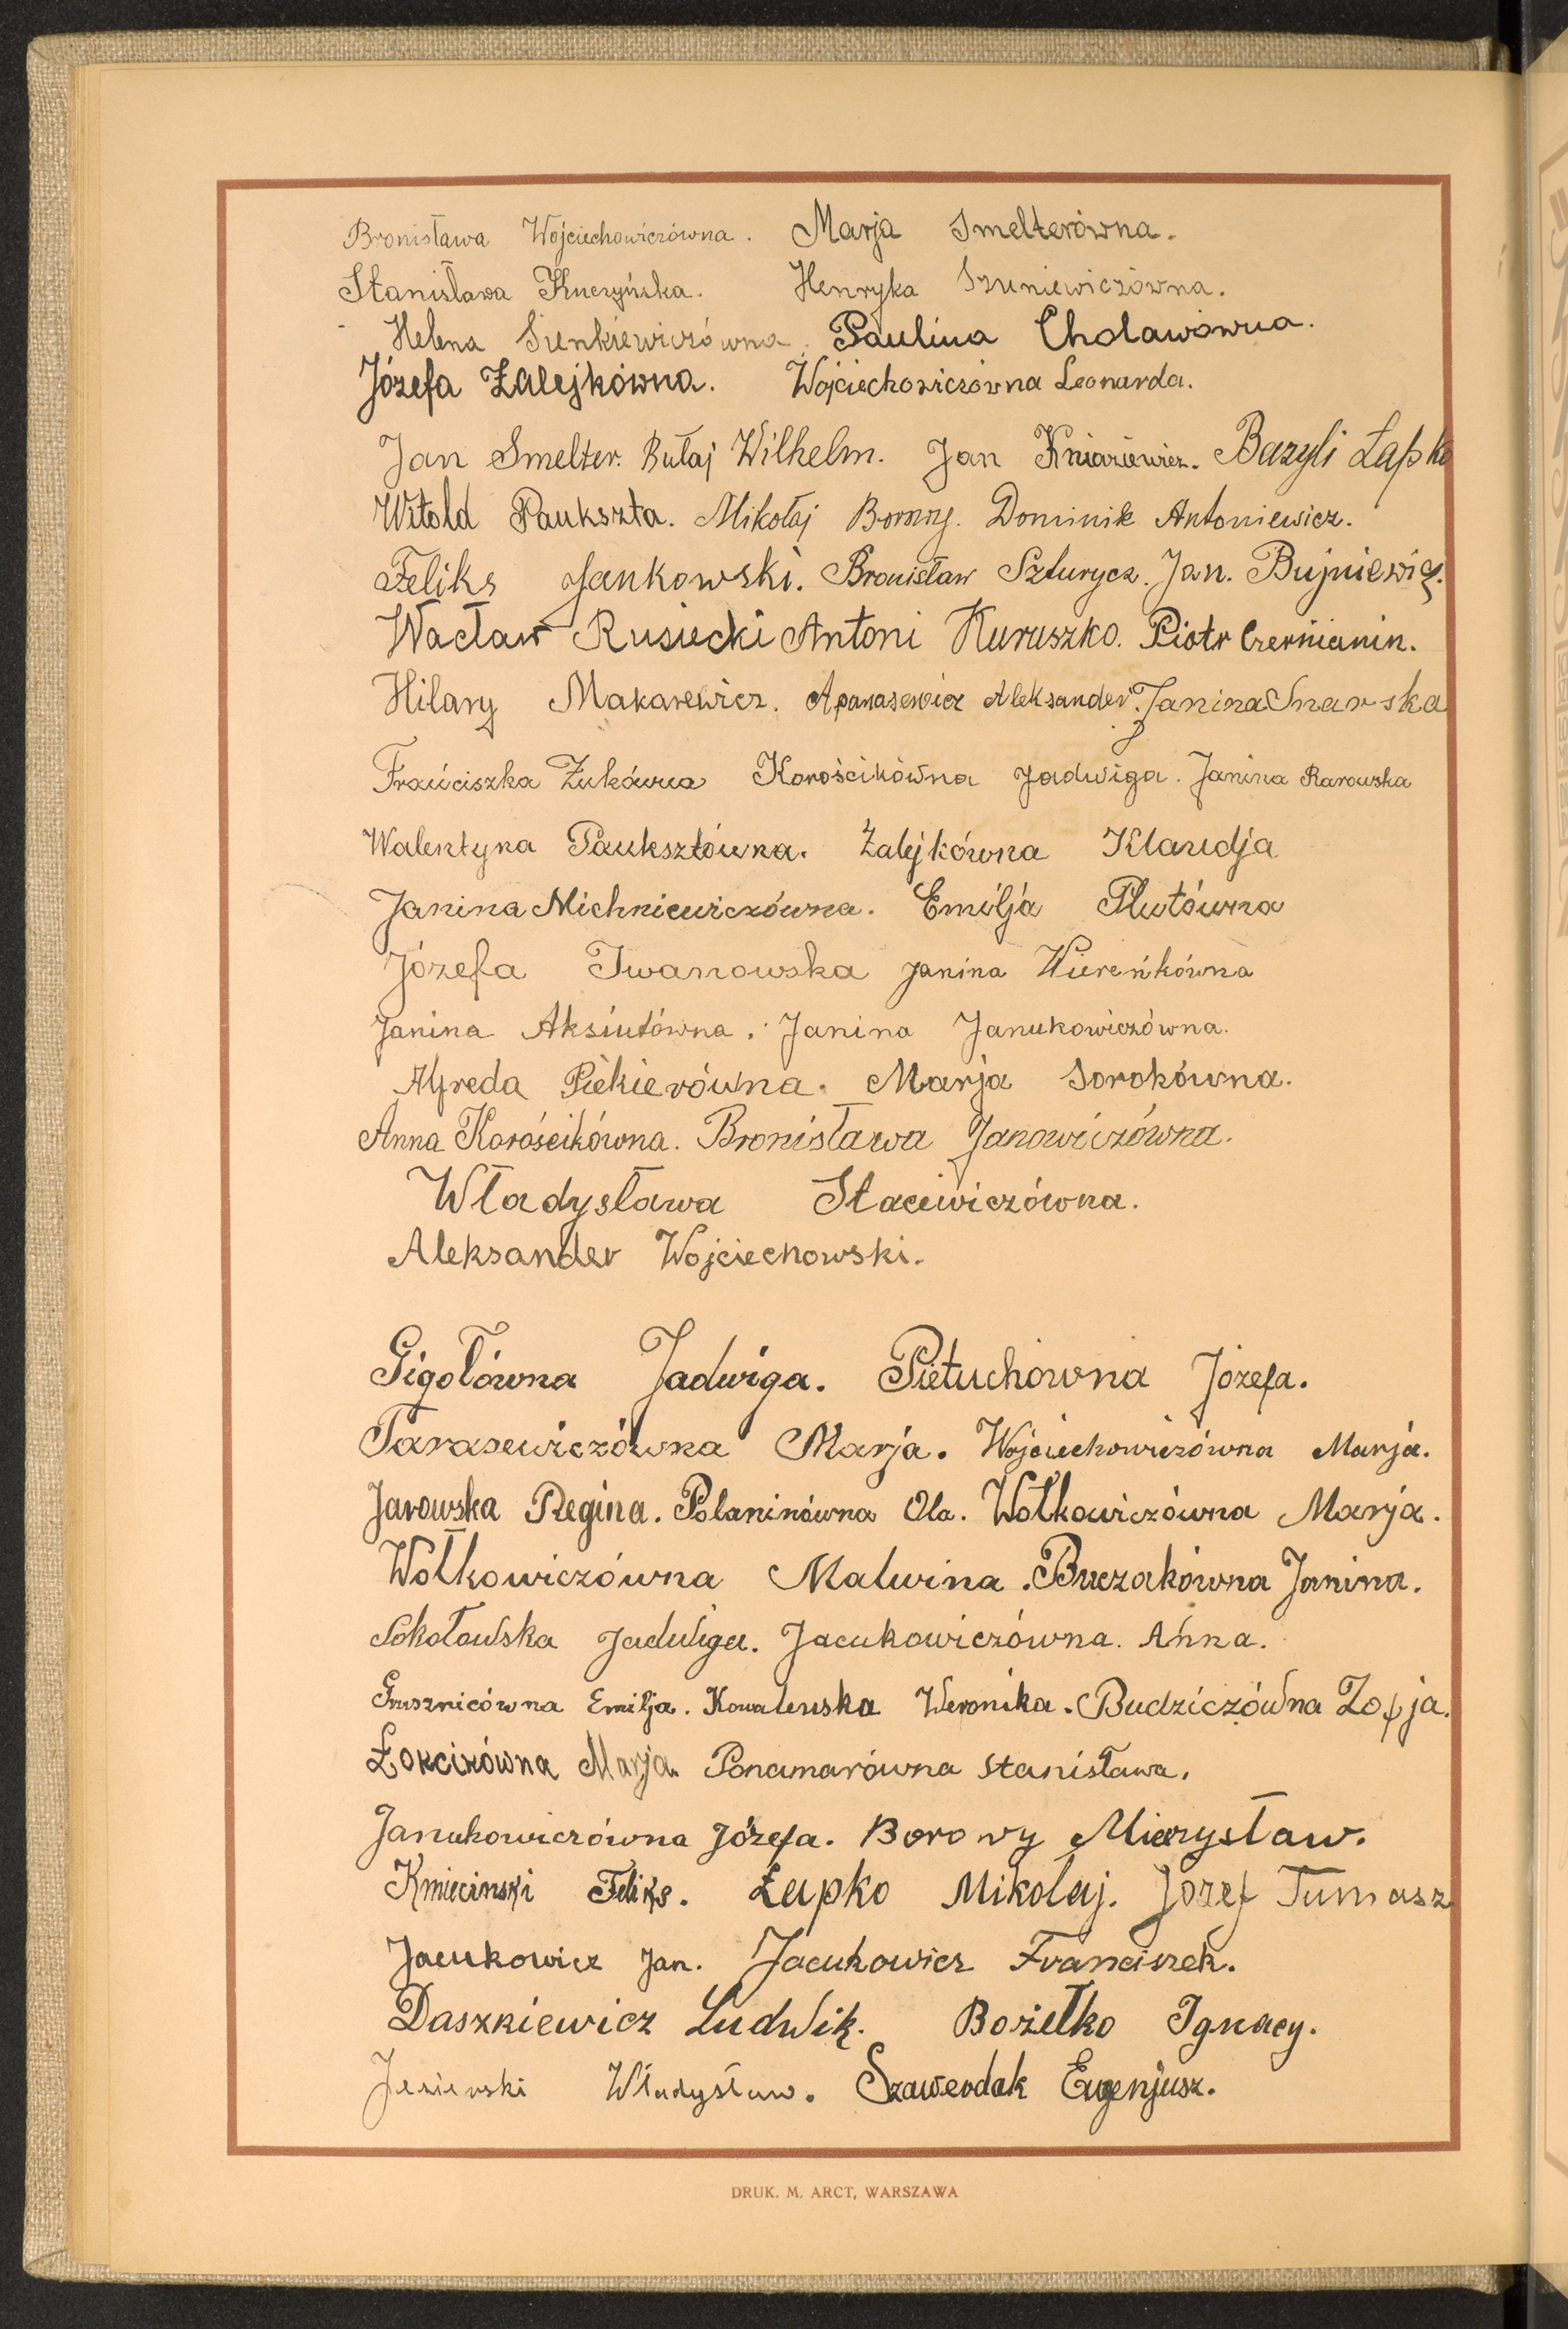 Bronisława Wojciechowiczówna. Marja Smelterówna.
Stanisława Kuczyńska. Henryka Szuniewiczówna.
Helena Sienkiewiczówna. Paulina Cholawówna.
Józefa Zalejkówna. Wojciechowiczówna Leonarda.
Jan Smelter. Butaj Wilhelm. Jan Kniaziewicz. Bazyli Łapko
Witold Paukszta. Mikołaj Borowy. Dominik Antoniewicz.
Feliks Jankowski. Bronisław Szturycz. Jan. Bujniewicz.
Wacław Rusiecki Antoni Kuruszko. Piotr Czernianin.
Hilary Makarewicz. Apanasewicz Aleksander. Janina Snarska
Franciszka Żukówna Korościkówna Jadwiga. Janina Rarowska
Walentyna Pauksztówna. Zalejkówna Klaudja
Janina Michniewiczówna. Emilja Plutówna
Józefa Iwanowska Janina Wiereńkówna
Janina Aksiutówna. Janina Janukowiczówna.
Alfreda Piekierówna. Marja Sorokówna.
Anna Korościkówna. Bronisława Janowiczówna.
Władysława Stacewiczówna.
Aleksander Wojciechowski.
Gigołówna Jadwiga. Pietuchówna Józefa.
Tarasewiczówna Marja. Wojciechowiczówna Marja.
Jarowska Regina. Polaninówna Ola. Wołkowiczówna Marja.
Wołkowiczówna Malwina. Buczakówna Janina.
Sokołowska Jadwiga. Jacukowiczówna. Anna.
Grusznicówna Emilja. Kowalewska Weronika. Budziczówna Zofja.
Łokcikówna Marja. Ponamarówna Stanisława.
Janukowiczówna Józefa. Borowy Mieczysław.
Kmieciński Feliks. Łapko Mikołaj. Józef Tumasz
Jacukowicz Jan. Jacukowicz Franciszek.
Daszkiewicz Ludwik. Bożełko Ignacy.
Jesierski Władysław. Szawerdak Eugenjusz.
DRUK. M. ARCT, WARSZAWA